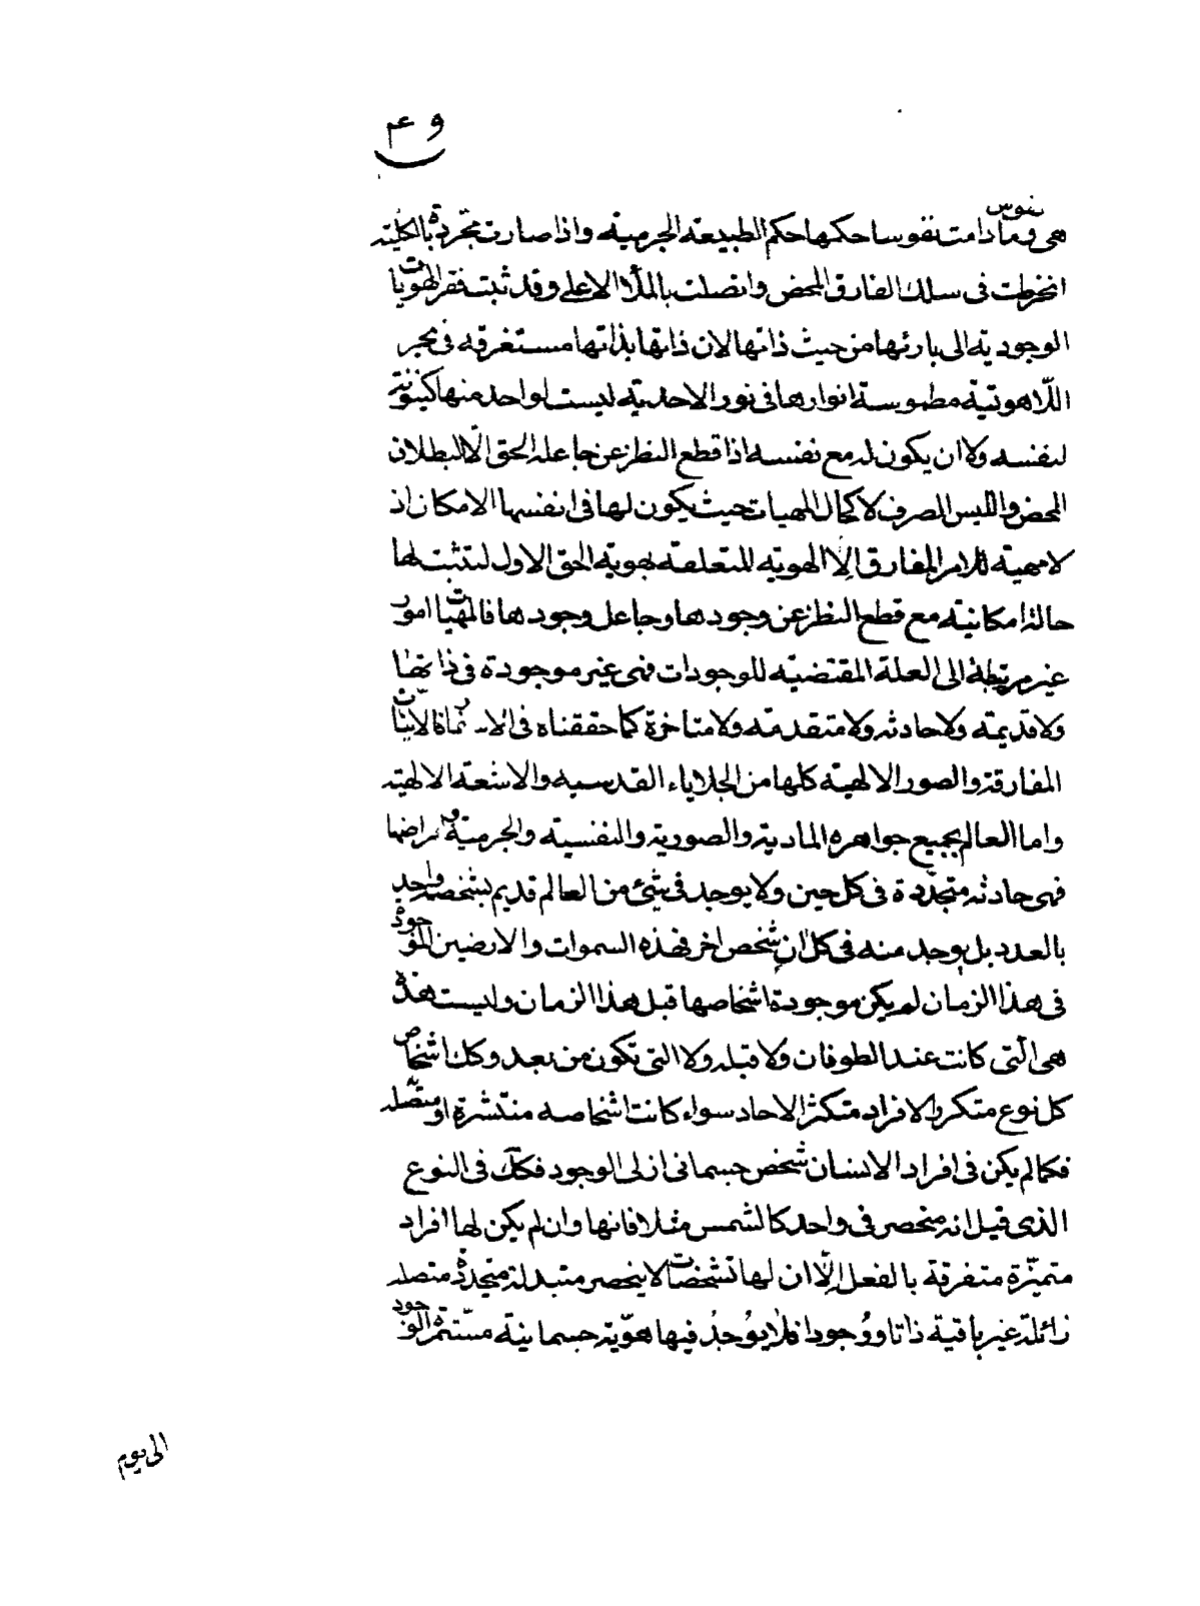 ٤٩
نفوس
هى وما دامت نفوسا حكمها حكم الطبيعة الجرمية واذا صارت مجردة بالكلية
انخرطت فى سلك المفارق المحض واتصلت بالملأ الاعلى وقد ثبت فقر الهويات
الوجودية الى بارئها من حيث ذاتها لان ذاتها بذاتها مستغرقه فى بحر
اللّاهوتية مطموسة انوارها فى نور الاحدية ليست لواحد منها كينونة
لنفسه ولا ان يكون له مع نفسه اذا قطع النظر عن جاعله الحق الّا البطلان
المحض والليس الصرف لا كحال المهيات حيث يكون لها فى انفسها الامكان اذ
لا مهية للامر المفارق الّا الهوية المتعلقة بهوية الحق الاول لتثبت لها
حالة امكانية مع قطع النظر عن وجودها وجاعل وجودها فالمهيات امور
غير مرتبطة الى العلة المقتضيه للوجودات فهى غير موجودة فى ذاتها
ولا قديمة ولا حادثه ولا متقدمة ولا متاخرة كما حققناه فى الاسفار فالانيّات
المفارقة والصور الالهية كلها من الجلاياء القدسيه والاشعة الالهية
واما العالم بجميع جواهره المادية والصورية والنفسية والجرمية واعراضها
فهى حادثه متجدّدة فى كل حين ولا يوجد فى شئ من العالم قديم بشخصه واحد
بالعدد بل يوجد منه فى كل ان شخص اخر فهذه السموات والارضين الموجودة
فى هذا الزمان لم يكن موجودة اشخاصها قبل هذا الزمان وليست هذه
هى الّتى كانت عند الطوفان ولا قبله ولا التى تكون من بعد وكك اشخاص
كل نوع متكرر الافراد متكثر الاحاد سواء كانت اشخاصه منتشرة او متّصله
فكما لم يكن فى افراد الانسان شخص جسمانى ازلى الوجود فكك فى النوع
الذى قيل انه منحصر فى واحد كالشمس مثلا فانها وان لم يكن لها افراد
متميّزة متفرقة بالفعل الّا ان لها تشخصات لا ينحصر متبدلة متجددة متصله
زائلة غير باقية ذاتا ووجودا فلا يوجد فيها هوّية جسمانية مستمرة الوجود
الى يوم